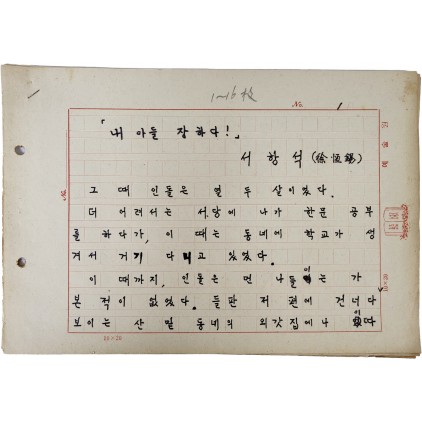 1~16枚
No. 1
「내 아들 장하다!」
서 항 석 (徐恒錫)
그 때 인돌은 열 두 살이었다.
더 어려서는 서당에 나가 한문 공부
를 하다가, 이 때는 동네에 학교가 생
겨서 거기 다니고 있었다.
이 때까지, 인돌은 먼 나들이는 가
본 적이 없었다. 들판 저 편에 건너다
보이는 산 밑 동네의 외갓집에나
10×20
10×20